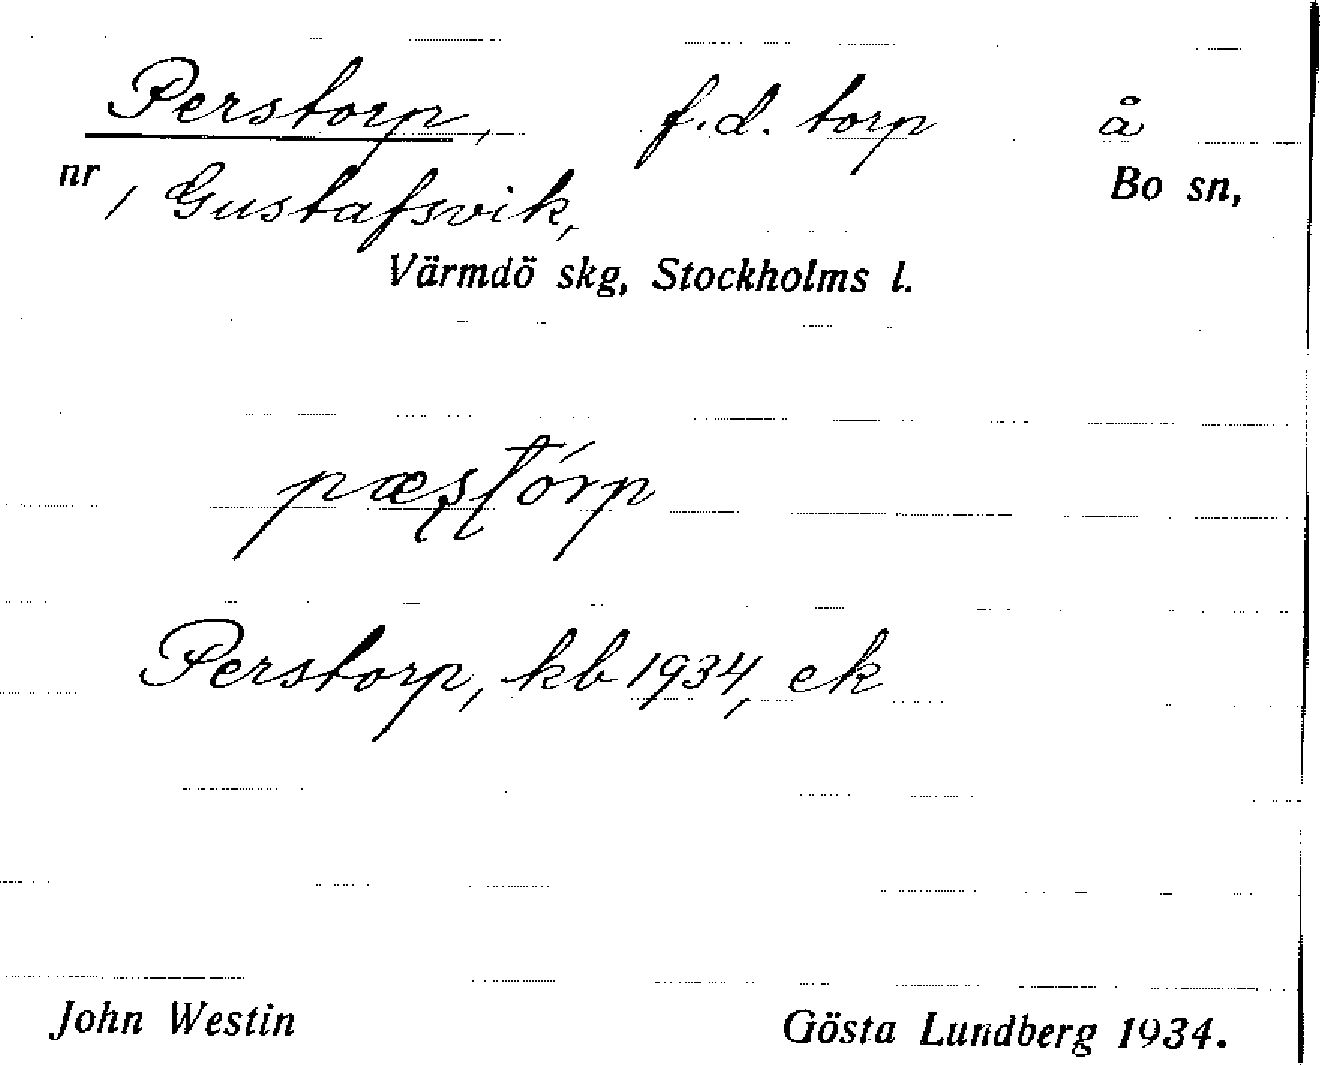 Perstorp, f.d. torp å
nr 1, Gustafsvik, Bo sn,
Värmdö skg, Stockholms l.
pæştórp
Perstorp, kb 1934, ek
John Westin Gösta Lundberg 1934.